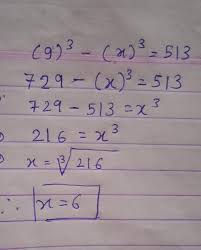 (9)³ - (x)³ = 513
729 - (x)³ = 513
729 - 513 = x³
216 = x³
x = ∛216
∴ x = 6